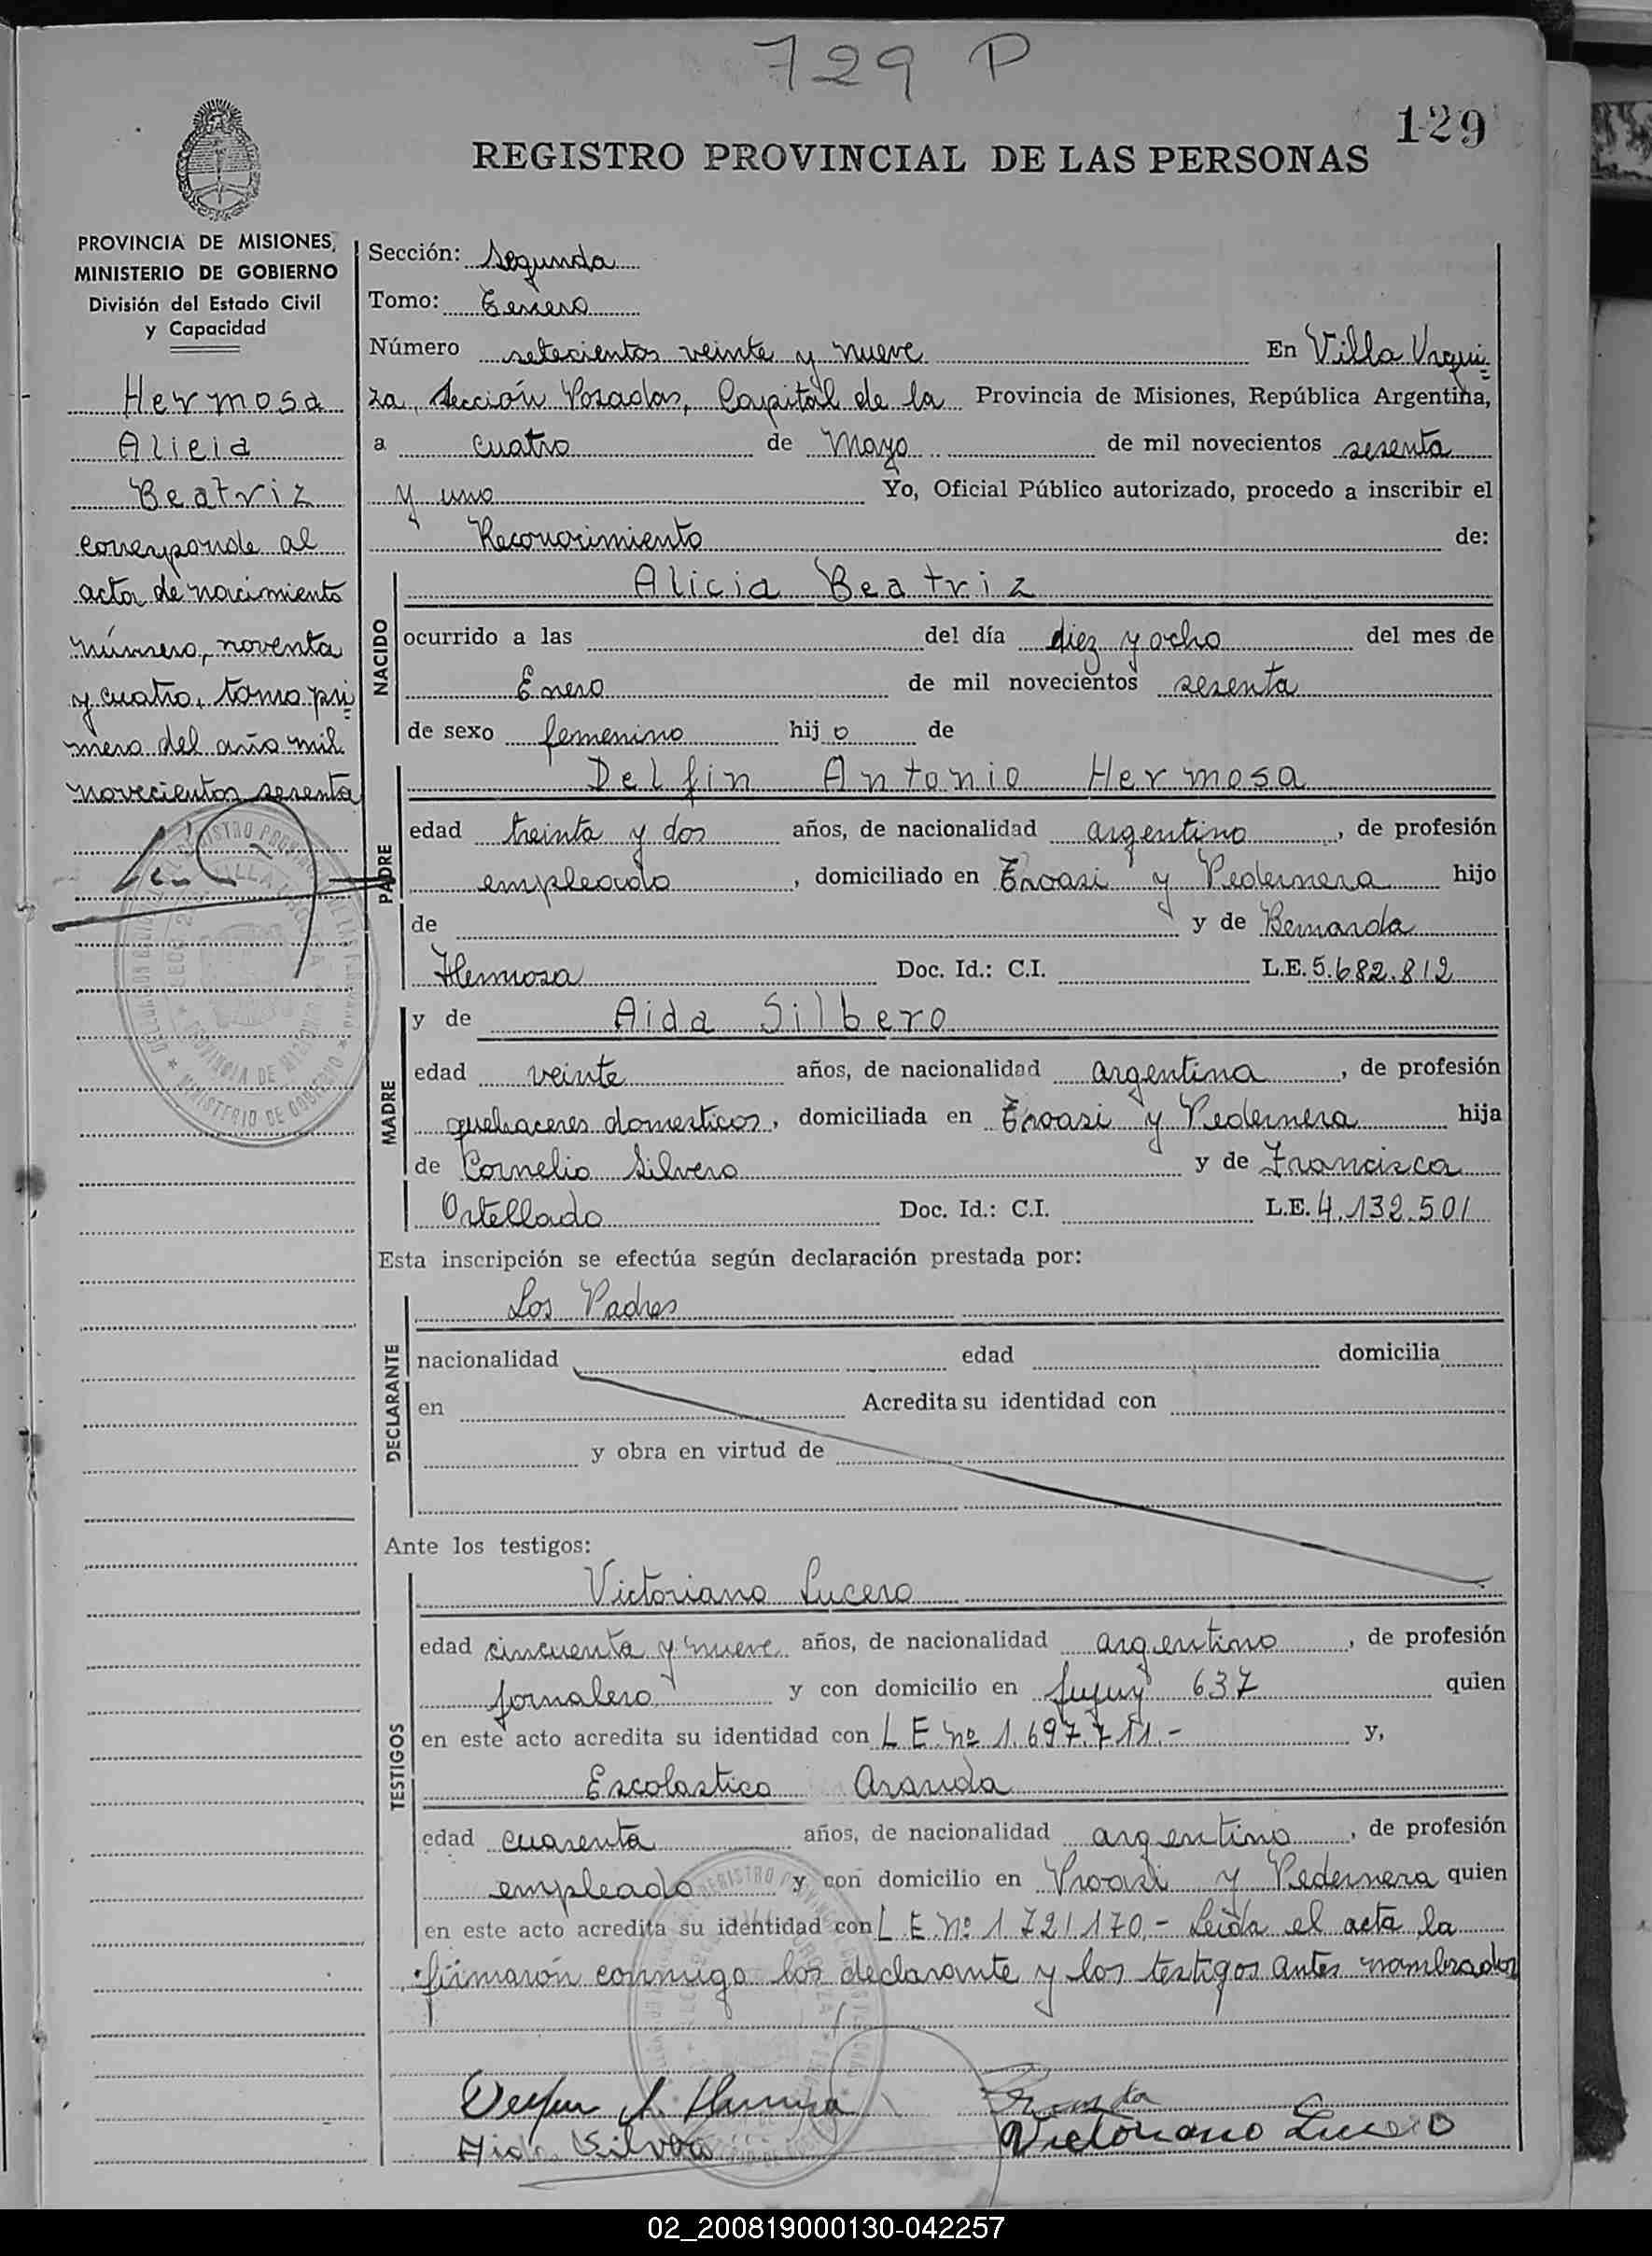 729 P
129
REGISTRO PROVINCIAL DE LAS PERSONAS
PROVINCIA DE MISIONES,
MINISTERIO DE GOBIERNO
División del Estado Civil
y Capacidad
Hermosa
Alicia
Beatriz
corresponde al
acta de nacimiento
número, noventa
y cuatro, tomo pri=
mero del año mil
novecientos sesenta
Sección: Segunda
Tomo: Tercero
Número setecientos veinte y nueve En Villa Urqui=
za, Sección Posadas, Capital de la Provincia de Misiones, República Argentina,
a cuatro de Mayo de mil novecientos sesenta
y uno Yo, Oficial Público autorizado, procedo a inscribir el
Reconocimiento de:
NACIDO
Alicia Beatriz
ocurrido a las del día diez y ocho del mes de
Enero de mil novecientos sesenta
de sexo femenino hijo de
PADRE
Delfin Antonio Hermosa
edad treinta y dos años, de nacionalidad argentino, de profesión
empleado, domiciliado en y Pedernera hijo
de y de Bernarda
Hermosa Doc. Id.: C.I. L.E. 5.682.812
MADRE
y de Aida Silbero
edad veinte años, de nacionalidad argentina, de profesión
quehaceres domesticos, domiciliada en y Pedernera hija
de Cornelio Silvero y de Francisca
Ortellado Doc. Id.: C.I. L.E. 4.132.501
Esta inscripción se efectúa según declaración prestada por:
DECLARANTE
Los Padres
nacionalidad edad domicilia
en Acredita su identidad con
y obra en virtud de
Ante los testigos:
TESTIGOS
Victoriano Lucero
edad cincuenta y nueve años, de nacionalidad argentino, de profesión
jornalero y con domicilio en Jujuy 637 quien
en este acto acredita su identidad con L E nº 1.697.711.- y,
Escolastico Aranda
edad cuarenta años, de nacionalidad argentino, de profesión
empleado y con domicilio en y Pedernera quien
en este acto acredita su identidad con L E. nº 1 721170,- Leída el acta la
firmaron conmigo los declarante y los testigos antes nombrados
Aida Silvero
Victoriano Lucero
02_200819000130-042257